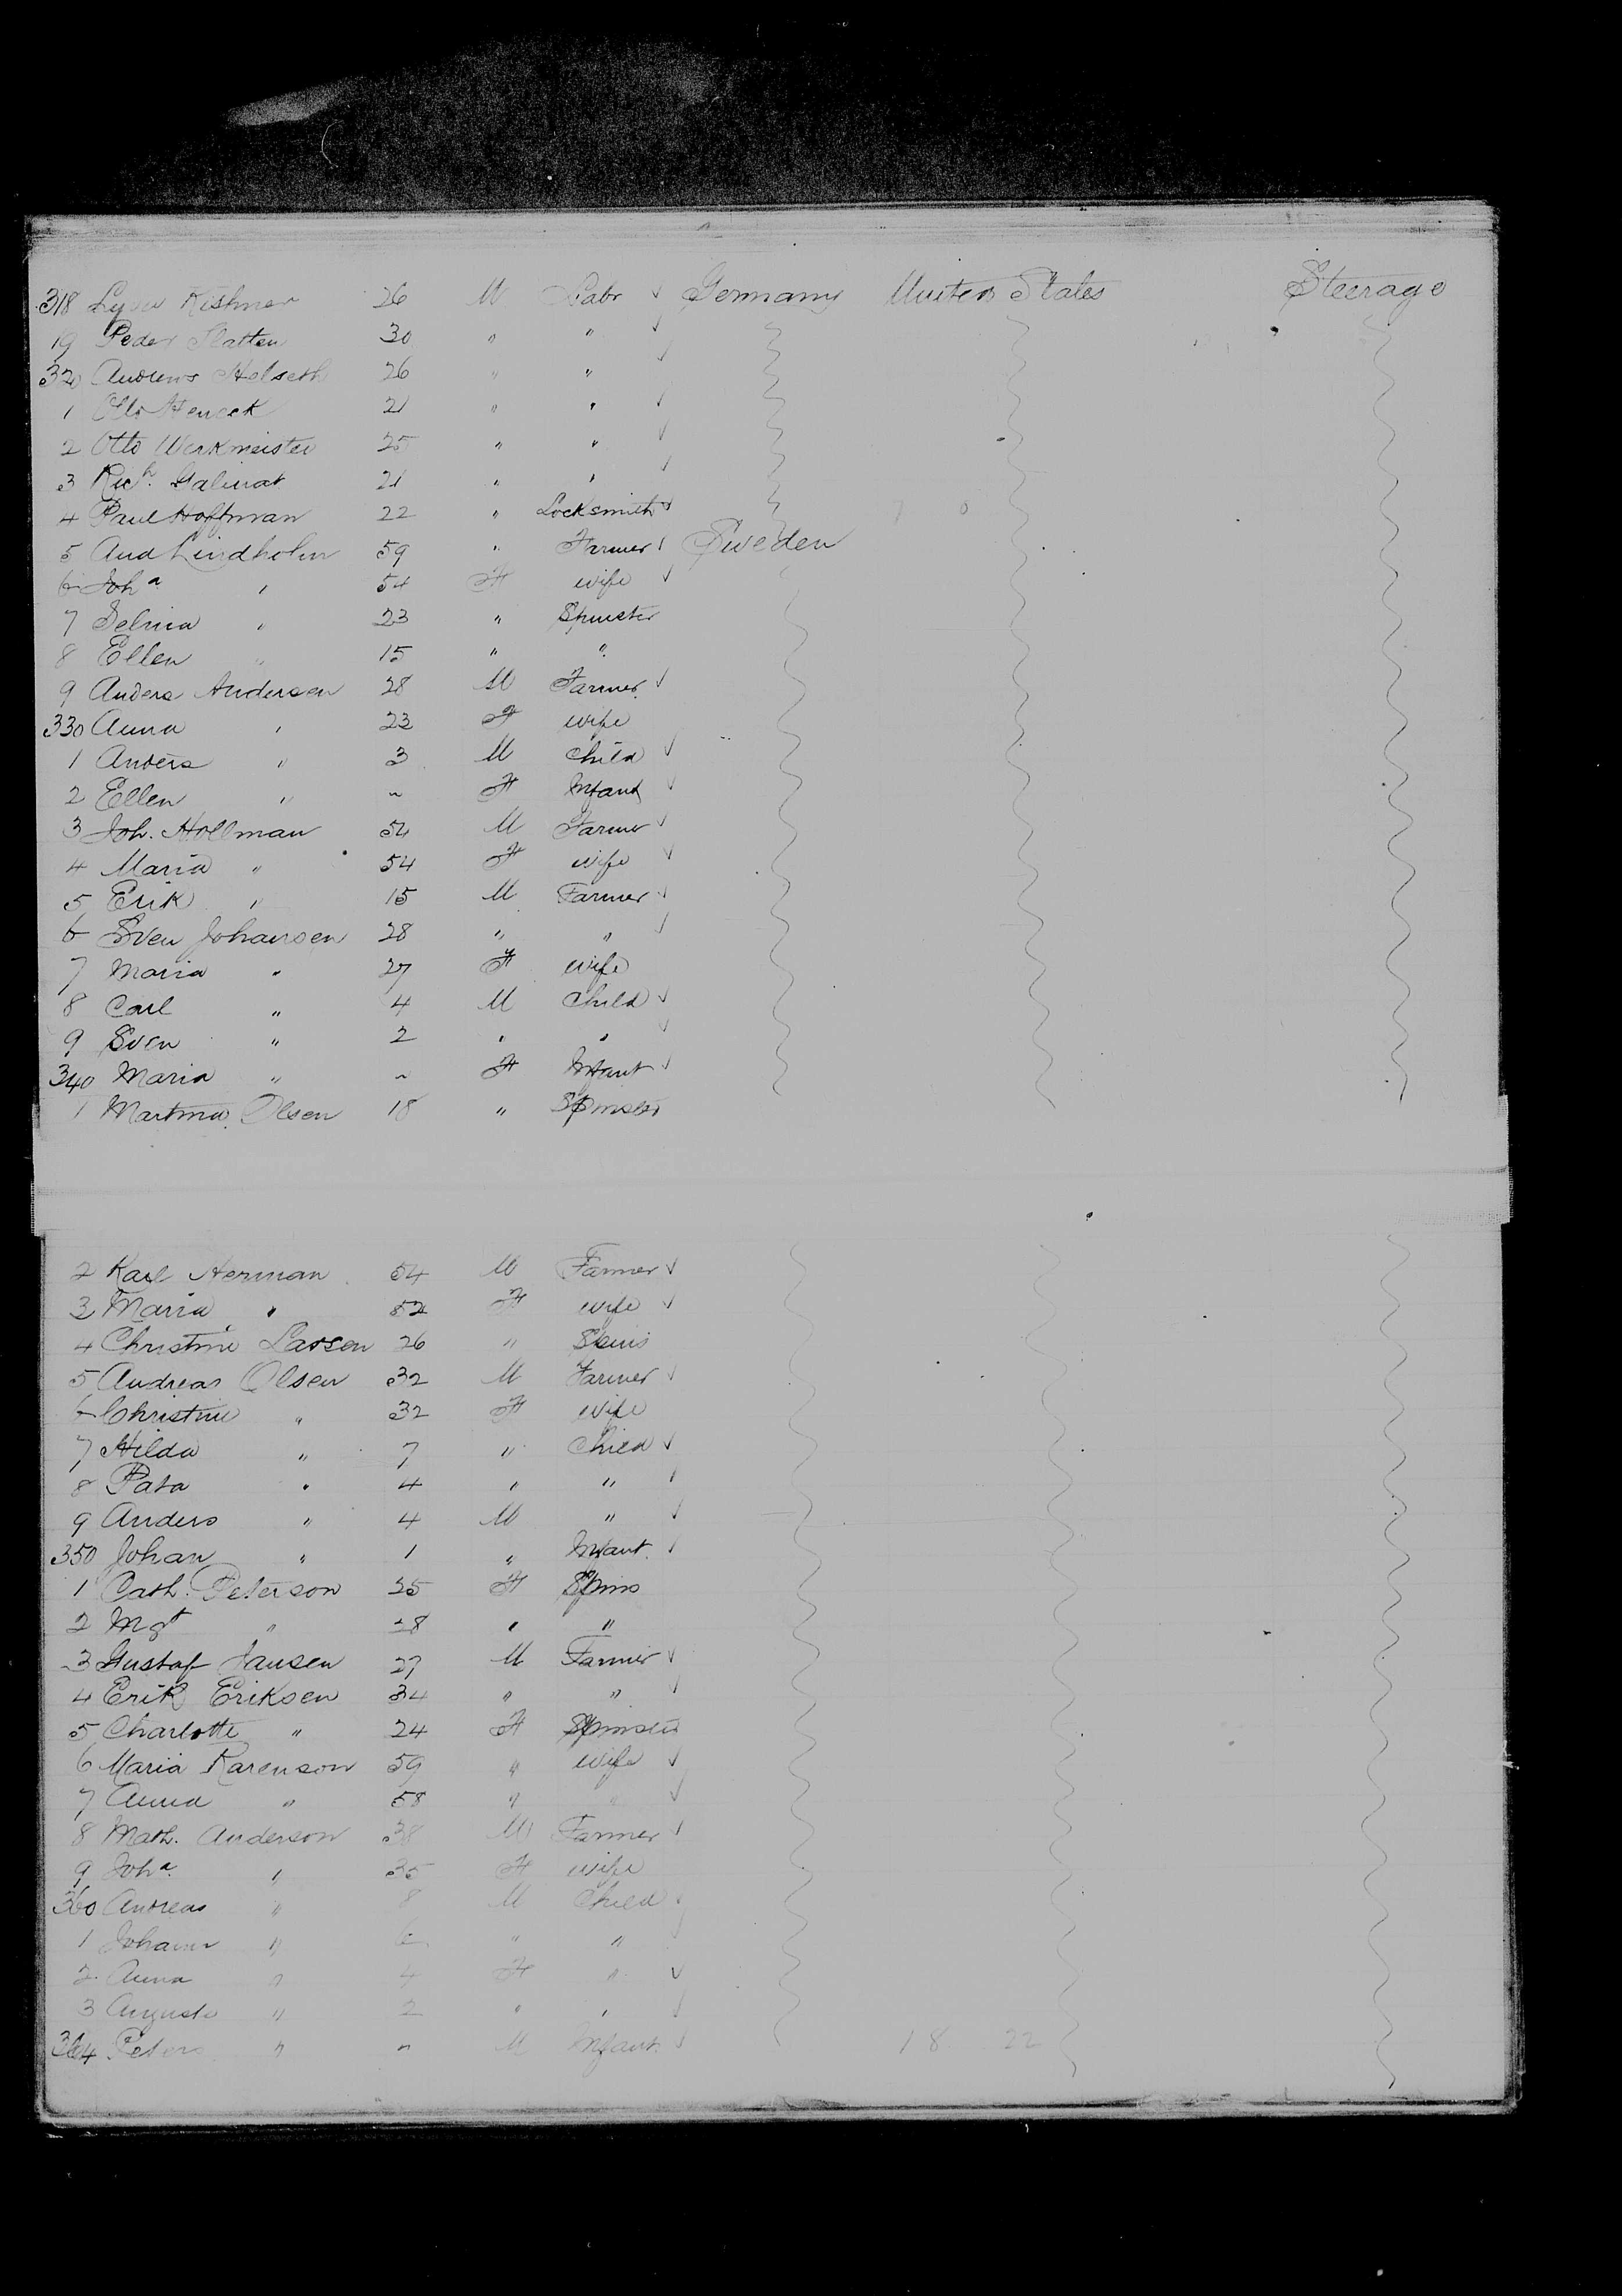 318 Kishner 26 M Labr ✓ Germany United States Steerage
19 Peder Slatten 30 " " ✓
320 Andrews Helseth 26 " " ✓
1 Otto Hencek 21 " " ✓
2 Otto Werkmeister 25 " " ✓
3 Rich. Galinat 21 " " ✓
4 Paul Hoffman 22 " Locksmith ✓
5 And Lindholm 59 " Farmer ✓ Sweden
6 Joha " 54 F wife ✓
7 Selma " 23 " Spinster
8 Ellen " 15 " "
9 Anders Andersen 28 M Farmer ✓
330 Anna " 23 F wife
1 Anders " 3 M Child ✓
2 Ellen " " F Infant ✓
3 Joh. Hollman 54 M Farmer ✓
4 Maria " 54 F wife ✓
5 Erik " 15 M Farmer ✓
6 Sven Johansen 28 " " ✓
7 Maria " 27 F wife
8 Carl " 4 M Child ✓
9 Sven " 2 " " ✓
340 Maria " " F Infant ✓
1 Martina Olsen 18 " Spinster
2 Karl Herman 54 M Farmer ✓
3 Maria " 52 F wife ✓
4 Christine Larsen 26 " Spins
5 Andreas Olsen 32 M Farmer ✓
6 Christine " 32 F wife
7 Hilda " 7 " Child ✓
8 " 4 " " ✓
9 Anders " 4 M " ✓
350 Johan " 1 " Infant ✓
1 Cath. Peterson 25 F Spins
2 Mgt " 28 " "
3 Gustaf Jansen 27 M Farmer ✓
4 Erik Eriksen 34 " " ✓
5 Charlotte " 24 F Spinster
6 Maria Karenson 59 " wife ✓
7 Anna " 58 " " ✓
8 Math. Anderson 38 M Farmer ✓
9 Joha. " 35 F wife
360 Andreas " 8 M Child ✓
1 Johann " 6 " " ✓
2 Anna " 4 F " ✓
3 Augusta " 2 " " ✓
364 Peters " " M Infant ✓ 18 22